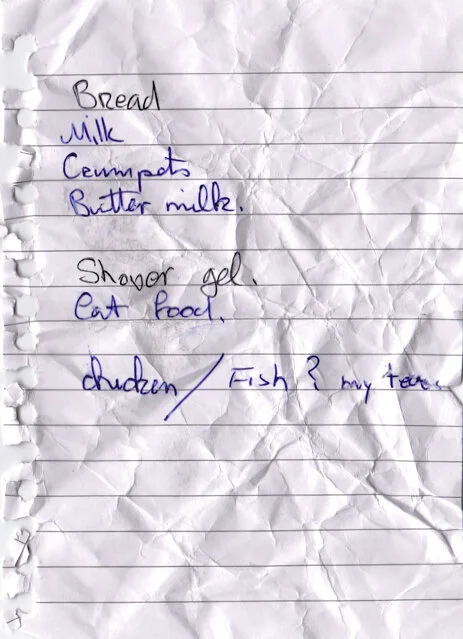 Bread
Milk
Crumpets
Butter milk.
Shower gel.
Cat food.
chicken / Fish ? my